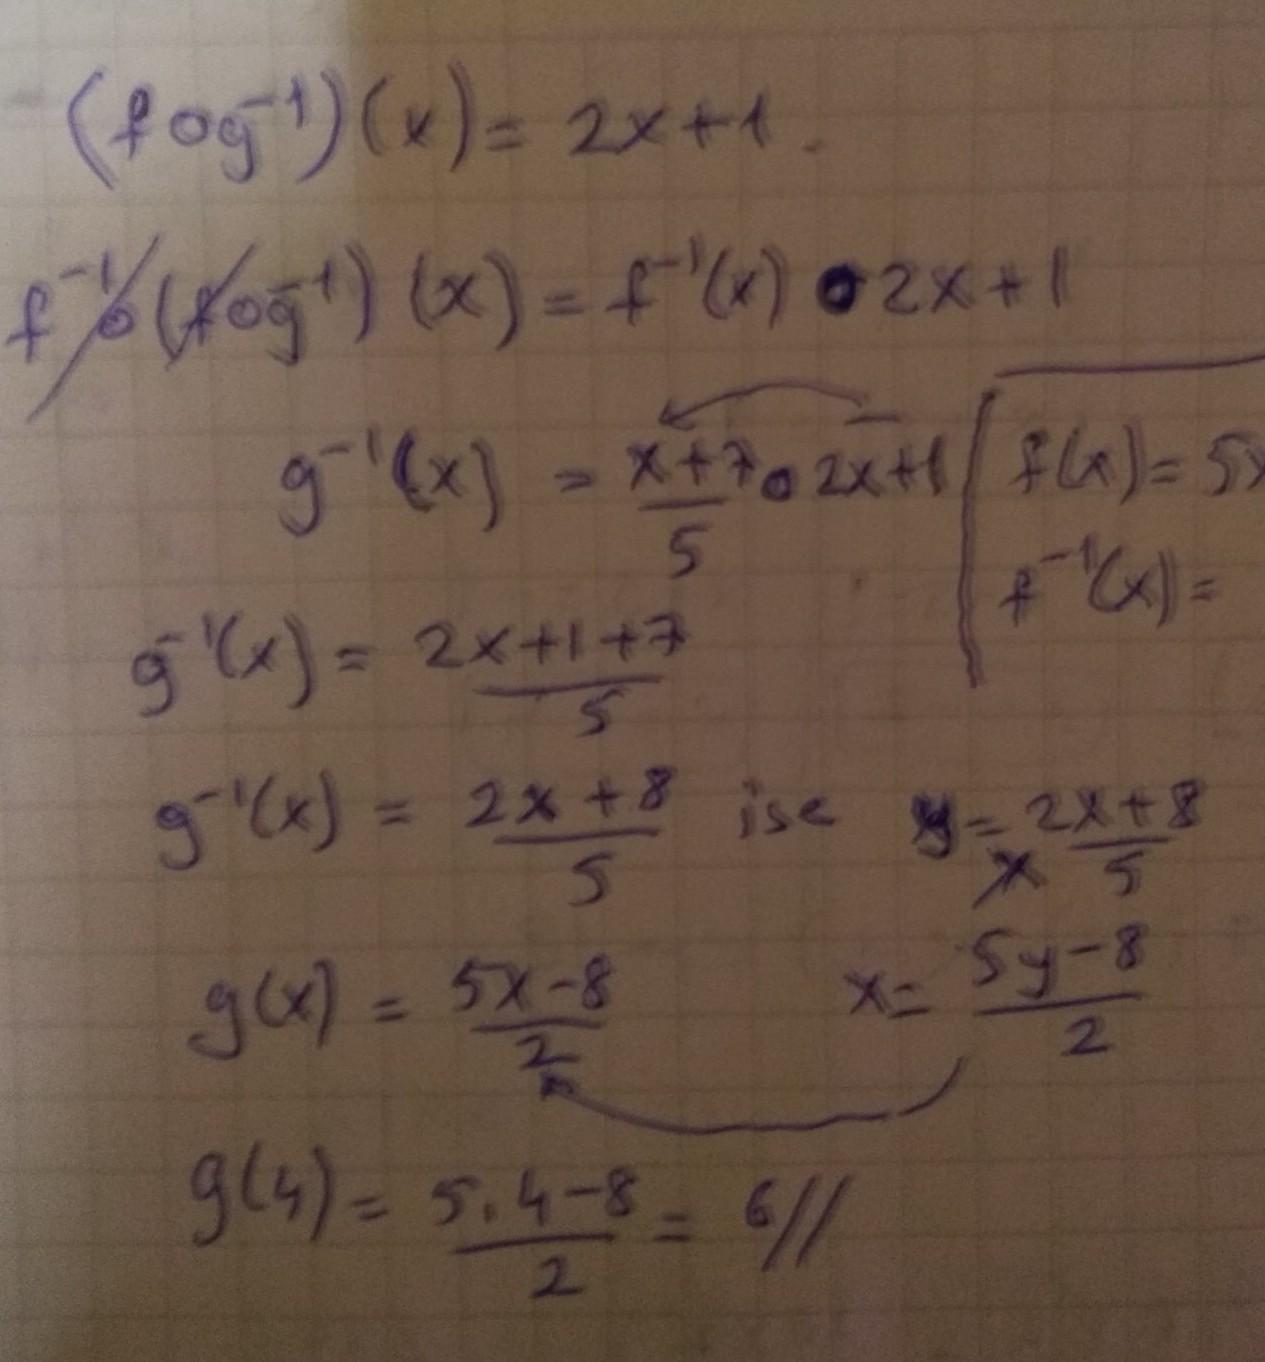 (fog⁻¹)(x) = 2x+1.
f⁻¹o(fog⁻¹)(x) = f⁻¹(x) o 2x+1
g⁻¹(x) = x+7/5 o 2x+1
f(x) = 5x
f⁻¹(x) =
g⁻¹(x) = 2x+1+7/5
g⁻¹(x) = 2x+8/5 ise y = 2x+8/5
x
g(x) = 5x-8/2 x = 5y-8/2
g(4) = 5.4-8/2 = 6//